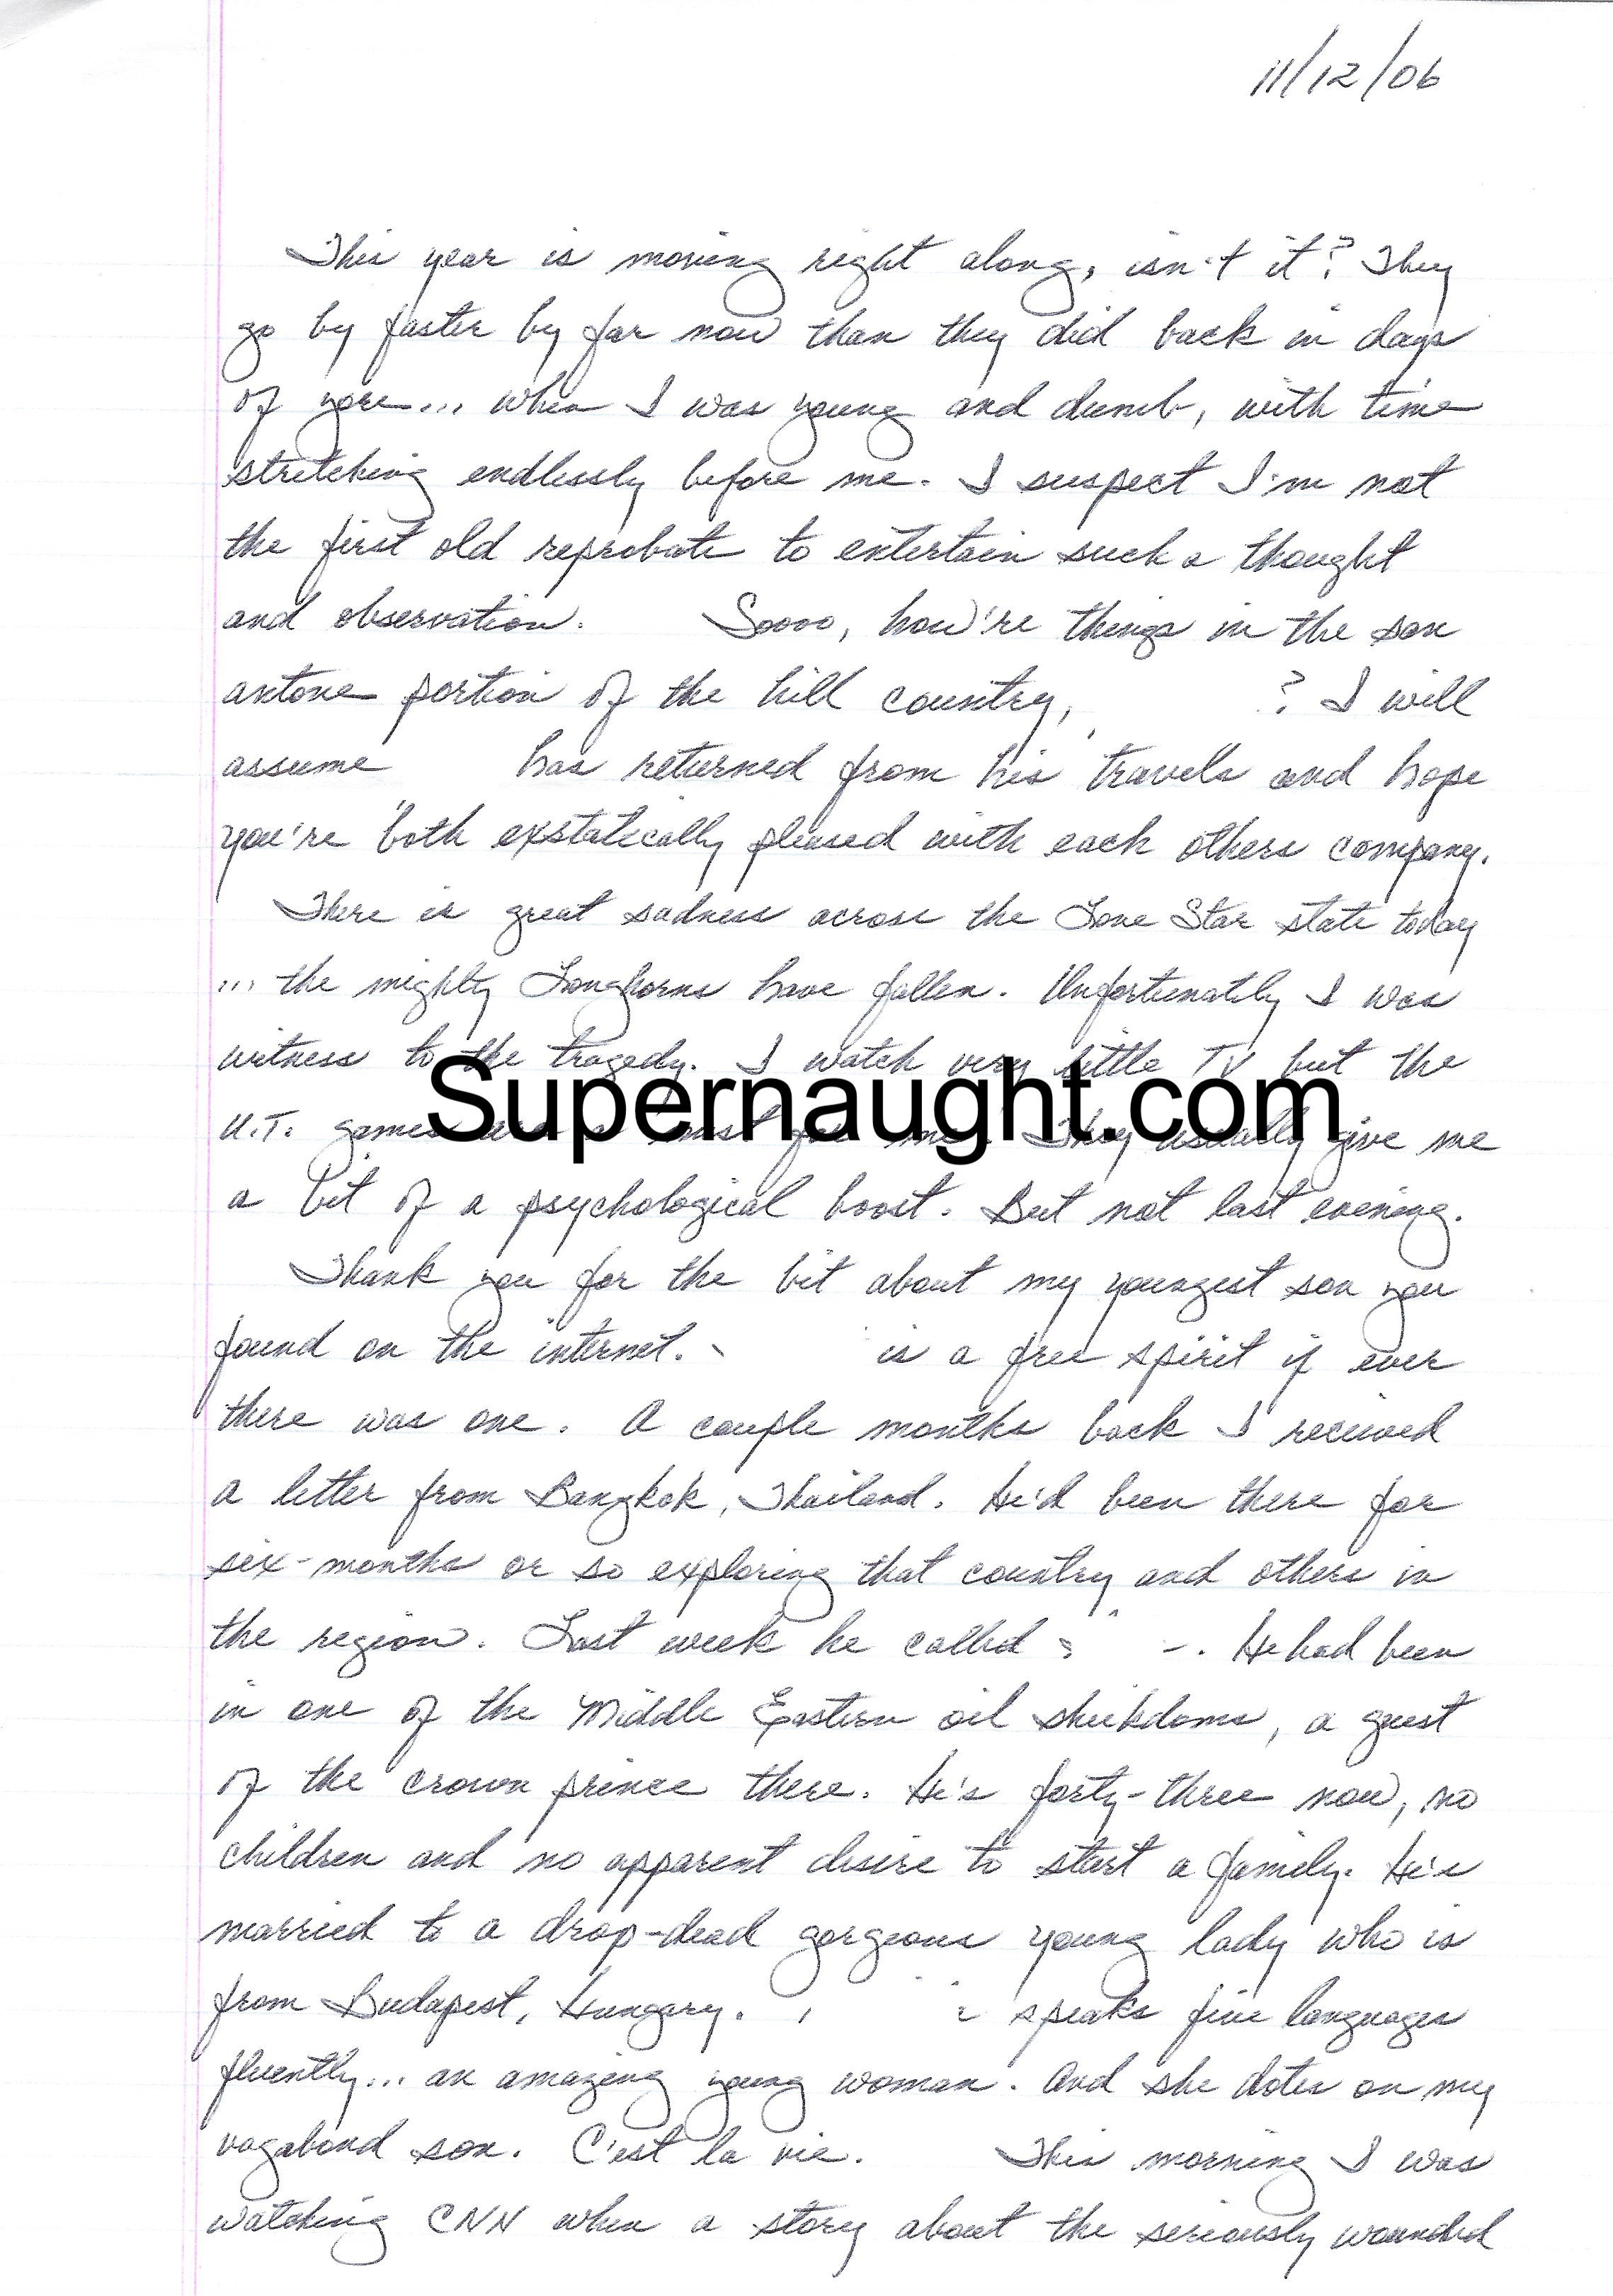 11/12/06
This year is moving right along, isn't it? They
go by faster by far now than they did back in days
of yore... when I was young and dumb, with time
stretching endlessly before me. I suspect I'm not
the first old reprobate to entertain such a thought
and observation. Soooo, how're things in the san
antone portion of the hill country, ? I will
assume has returned from his travels and hope
you're both exstatically pleased with each others company.
There is great sadness across the Lone Star state today
... the mighty Longhorns have fallen. Unfortunately I was
witness to the tragedy. I watch very little TV but the
Supernaught.com
U.T. games are a must for me. They usually give me
a bit of a psychological boost. But not last evening.
Thank you for the bit about my youngest son you
found on the internet. is a free spirit if ever
there was one. A couple months back I received
a letter from Bangkok, Thailand. He'd been there for
six-months or so exploring that country and others in
the region. Last week he called . He had been
in one of the Middle Eastern oil sheikdoms, a guest
of the crown prince there. He's forty-three now, no
children and no apparent desire to start a family. He's
married to a drop-dead gorgeous young lady who is
from Budapest, Hungary. speaks five languages
fluently... an amazing young woman. And she dotes on my
vagabond son. C'est la vie. This morning I was
watching CNN when a story about the seriously wounded